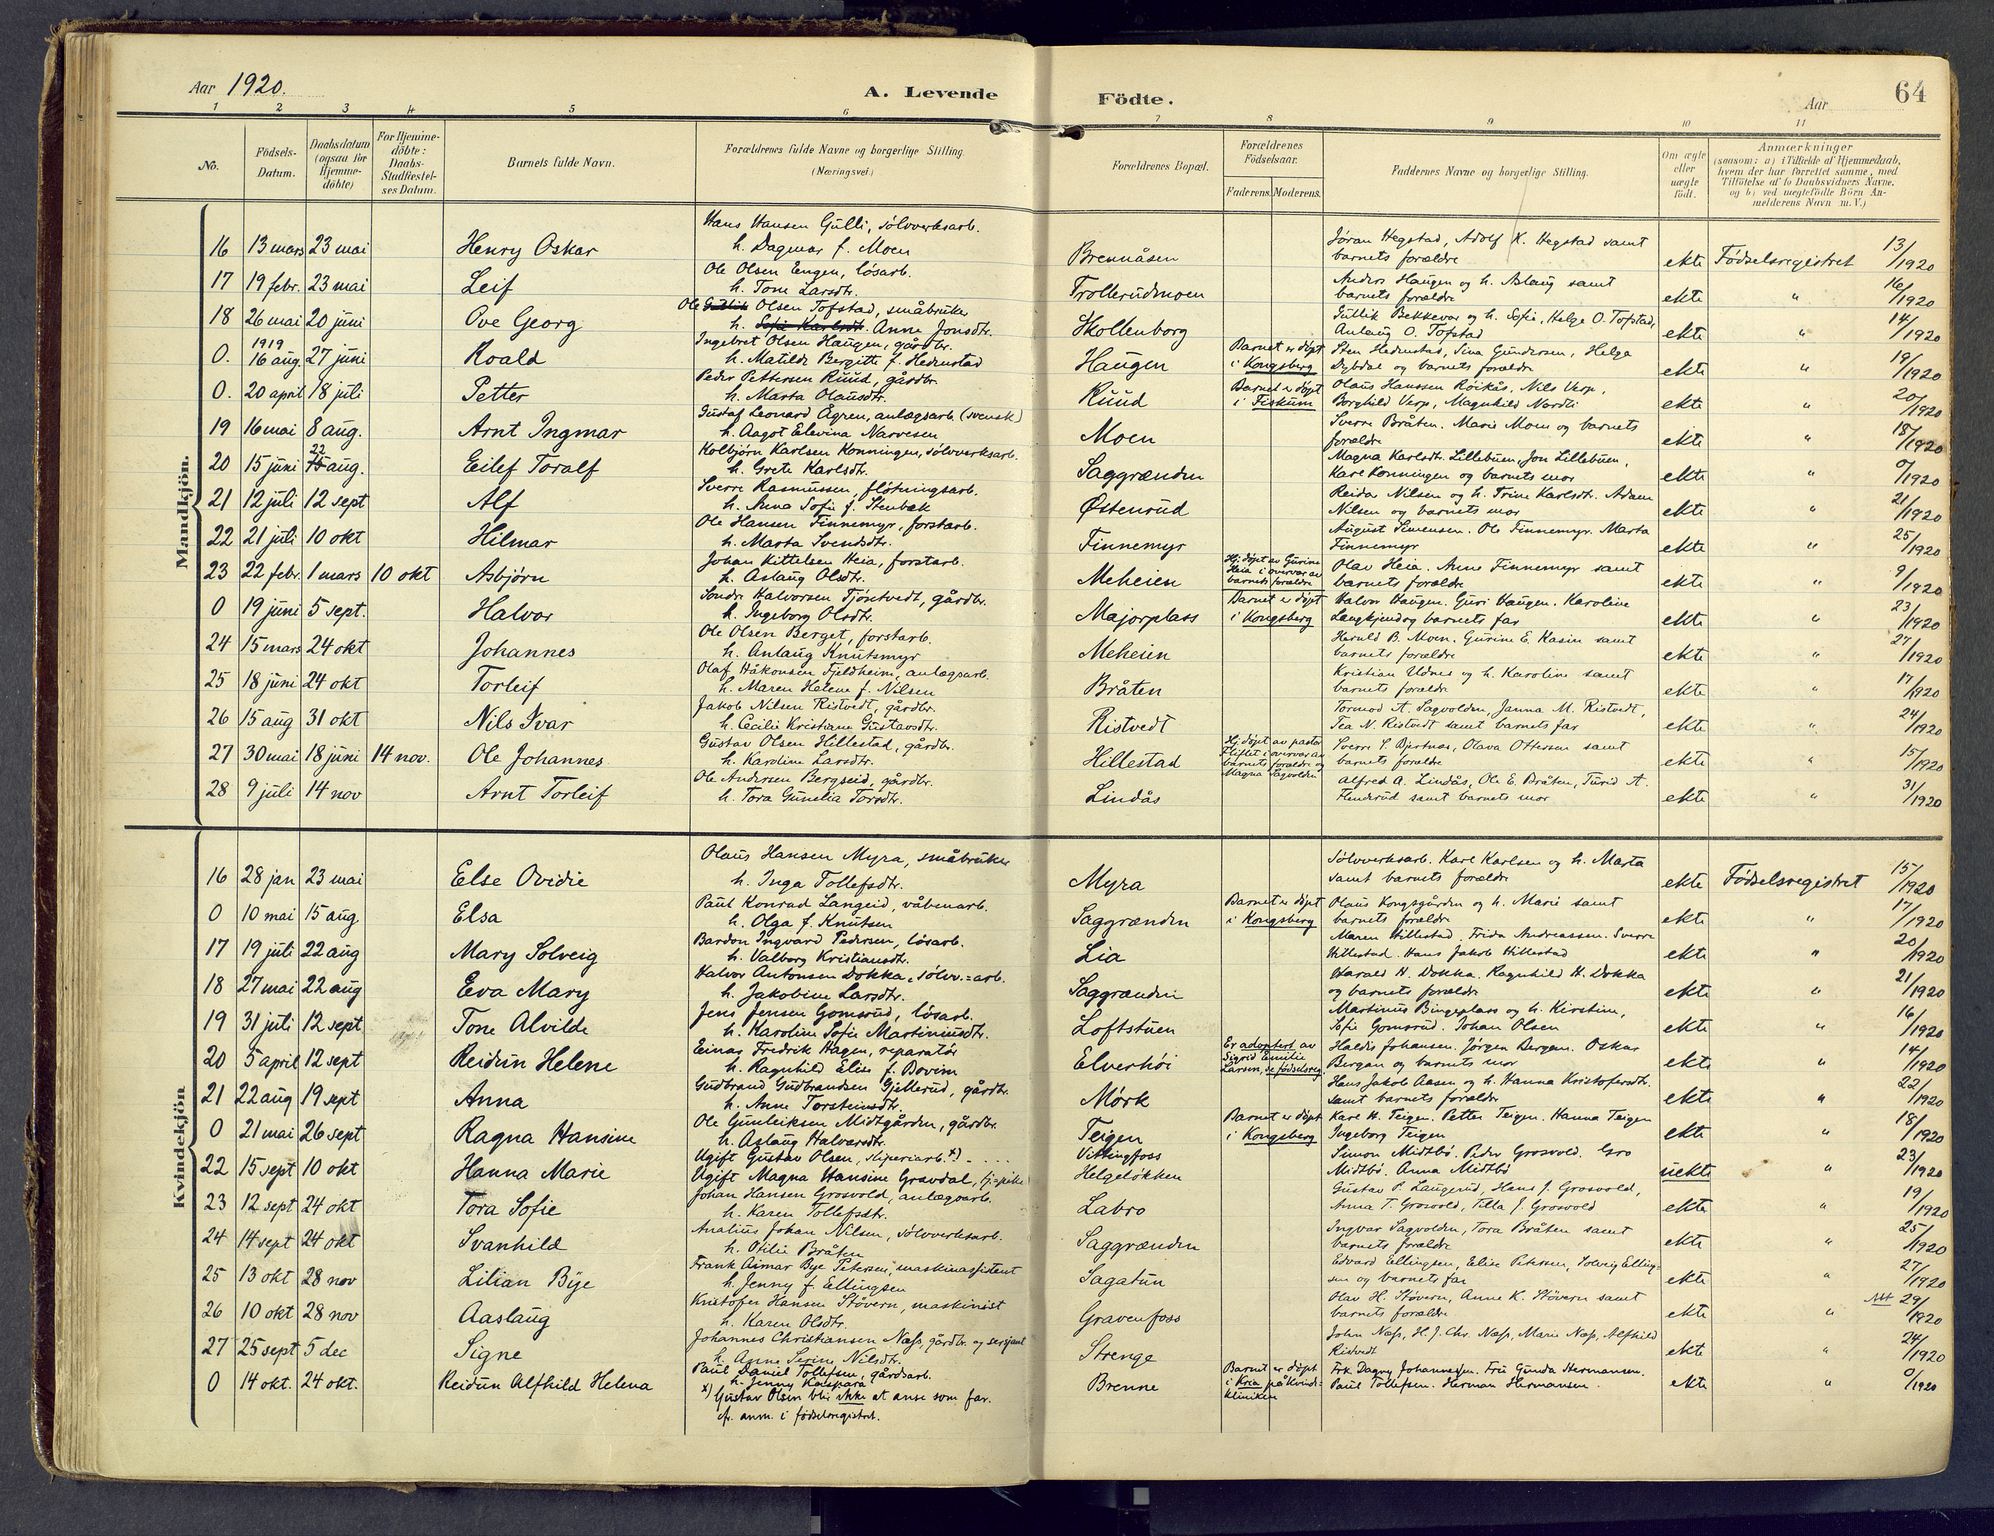 Aar 1920. A. Levende Födte. Aar 64
1 2 3 4 5 6 7 8 9 10 11
No. Födsels-Datum. Daabsdatum (ogsaa for Hjemmedöbte) For Hjemmedöbte: Daabs-Stadfæstelses Datum. Barnets fulde Navn. Forældrenes fulde Navne og borgerlige Stilling. (Næringsvei.) Forældrenes Bopæl. Forældrenes Födselsaar. Faderens. Moderens. Faddernes Navne og borgerlige Stilling. Om ægte eller uægte födt. Anmærkninger (saasom: a) i Tilfælde af Hjemmedaab, hvem der har forrettet samme, med Tilföielse af to Daabsvidners Navne, og b) ved uægtefödte Börn Anmelderens Navn m. V.)
Mandkjön.
16 13 mars 23 mai Henry Oskar Hans Hansen Gulli, sølvverksarb. h. Dagmar f. Moen Brennåsen Jøran Hegstad, Adolf K. Hegstad samt barnets forældre ekte Fødselsregistret 13/1920
17 19 febr. 23 mai Leif Ole Olsen Engen, løsarb. h. Tone Larsdtr. Trollerudmoen Anders Haugen og h. Aslaug samt barnets forældre ekte " 16/1920
18 26 mai 20 juni Ove Georg Ole Gullik Olsen Tofstad, småbruker h. Sofie Karlsdt. Anne Jonsdtr. Skollenborg Gullik Bekkevar og h. Sofie, Helge O. Tofstad, Anlaug O. Tofstad ekte " 14/1920
0. 1919 16 aug. 27 juni Roald Ingebret Olsen Haugen, gårdbr. h. Matilde Bergitte f. Hedenstad Haugen Barnet er døpt i Kongsberg Sten Hedenstad, Sina Gundersen, Helga Dybdal og barnets forældre ekte " 19/1920
0. 20 april 18 juli Petter Peder Pettersen Ruud, gårdbr. h. Marta Olausdtr. Ruud Barnet er døpt i Fiskum Olaus Hanssen Röikås, Nils Verp, Borghild Verp, Magnhild Nordli ekte " 20/1920
19 16 mai 8 aug. Arnt Ingmar Gustaf Leonard Ågren, anlægsarb. (svensk) h. Aagot Elevina Narvesen Moen Sverre Bråten. Marie Moen og barnets forældre ekte " 18/1920
20 15 juni 22 aug. Eilef Toralf Kolbjörn Karlsen Konningen, sølvverksarb. h. Grete Karlsdt. Saggrænden Magna Karlsdt. Lillebuen, Jon Lillebuen, Kare Konningen og barnets mor ekte " 0/1920
21 12 juli 12 sept Alf Sverre Rasmussen, fløtningsarb. h. Anna Sofie f. Stenbæk Østenrud Reidar Nilsen og h. Trine Karlsdt. Adam Nilsen og barnets mor ekte " 21/1920
22 21 juli 10 okt Hilmar Ole Hansen Finnemyr, forstarb. h. Marta Svendsdtr. Finnemyr August Simensen. Ole Finnemyr. Marta Finnemyr ekte " 25/1920
23 22 febr. 1 mars 10 okt Asbjørn Johan Kittelsen Heia, forstarb. h. Aslaug Olsdtr. Meheien Hj. døpt av Gurine Heia i overvær av barnets forældre Olav Heia. Anne Finnemyr samt barnets forældre ekte " 9/1920
0 19 juni 5 sept. Halvor Sondre Halvorsen Tjöntvedt, gårdbr. h. Ingeborg Olsdtr. Majorplass Barnet er døpt i Kongsberg Halvor Haugen. Guri Haugen. Karoline Langkjend og barnets far ekte " 23/1920
24 15 mars 24 okt Johannes Ole Olsen Berget, forstarb. h. Anlaug Knutsmyr Meheien Herald B. Moen. Gurine E. Kasin samt barnets forældre ekte " 27/1920
25 18 juni 24 okt Torleif Olaf Håkonsen Fjeldheim, anlægsarb. h. Maren Helene f. Nilsen Bråten Kristian Udnes og h. Karoline samt barnets forældre ekte " 17/1920
26 15 aug 31 okt Nils Ivar Jakob Nilsen Ristvedt, gårdbr. h. Cecilie Kristiane Gustavsdtr. Ristvedt Tormod A. Sagvolden, Janna M. Ristvedt, Tea N. Ristvedt samt barnets far ekte " 24/1920
27 30 mai 18 juni 14 nov. Ole Johannes Gustav Olsen Hillestad, gårdbr. h. Karoline Larsdtr. Hillestad Hj. døpt av pastor Fliflet i overvær av barnets forældre og Magna Sagvolden Sverre S. Bjertnæs, Olava Ottersen samt barnets forældre ekte " 15/1920
28 9 juli 14 nov Arnt Torleif Ole Andersen Bergseid, gårdbr. h. Tora Gunelia Torsdtr. Lindås Alfred A. Lindås, Ole E. Bråten, Turid A. Flenderud samt barnets mor ekte " 31/1920
Kvindekjön
16 28 jan 23 mai Else Ovidie Olaus Hansen Myra, småbruker h. Inga Tollefsdtr. Myra Sølvverksarb. Karl Karlsen og h. Marta samt barnets forældre ekte Fødselsregistret 15/1920
0 10 mai 15 aug. Elsa Paul Konrad Langeid, våbenarb. h. Olga f. Knutsen Saggrænden Barnet er døpt i Kongsberg Olaus Kongsgården og h. Marie samt barnets forældre ekte " 17/1920
17 19 juli 22 aug Mary Solveig Bardon Ingvard Pedersen, løsarb. h. Valborg Kristiansdt. Lia Maren Hillestad. Frida Andreassen. Sverre Hillestad. Hans Jakob Hillestad ekte " 20/1920
18 27 mai 22 aug Eva Mary Halvor Antonsen Dokka, sølvv.=arb. h. Jakobine Larsdtr. Saggrænden Harald H. Dokka. Ragnhild H. Dokka og barnets forældre ekte " 21/1920
19 31 juli 12 sept Tone Alvilde Jens Jensen Gomsrud, løsarb. h. Karoline Sofie Martiniusdtr. Loftstuen Martinius Bingeplass og h. Kirstine, Sofie Gomsrud. Johan Olsen ekte " 16/1920
20 5 april 12 sept Reidun Helene Einar Fredrik Hagen, reparatør h. Ragnhild Elise f. Bovim Elverhöi Er adoptert av Sigrid Emilie Larsen, se fødselsreg. Haldis Johansen. Jørgen Bergan. Oskar Bergan og barnets mor ekte " 14/1920
21 22 aug 19 sept Anna Gudbrand Gudbrandsen Gjellerud, gårdbr. h. Anne Torsteinsdtr. Mørk Hans Jakob Aasen og h. Hanna Kristofersdtr. samt barnets forældre ekte " 22/1920
0 21 mai 26 sept Ragna Hansine Ole Gunleiksen Midtgården, gårdbr. h. Aslaug Halvorsdtr. Teigen Barnet er døpt i Kongsberg Kare H. Teigen. Petter Teigen. Hanna Teigen Ingeborg Teigen ekte " 18/1920
22 15 sept 10 okt Hanna Marie Ugift Gustav Olsen, sliperiarb. x) Ugift Magna Hansine Gravdal, tj.pike Vittingfoss Helgeløkken Simon Midtbö. Peder Grosvold. Gro Midtbö. Anna Midtbö uekte " 23/1920
23 12 sept 24 okt Tora Sofie Johan Hansen Grosvold, anlægsarb. h. Karen Tollefsdtr. Labro Gustav P. Laugerud, Hans J. Grosvold, Anna T. Grosvold, Tilla J. Grosvold ekte " 19/1920
24 14 sept 24 okt Svanhild Analius Johan Nilsen, sølvverksarb. h. Otilie Bråten Saggrænden Ingvar Sagvolden, Tora Bråten samt barnets forældre ekte " 25/1920
25 13 okt 28 nov Lilian Bye Frank Aimar Bye Petersen, maskinassistent h. Jenny f. Ellingsen Sagatun Edvard Ellingsen, Elise Petersen, Solveig Ellingsen og barnets far ekte " 27/1920
26 10 okt 28 nov Aaslaug Kristofer Hansen Støvern, maskinist h. Karen Olsdtr. Gravenfoss Olav H. Stövern, Anne K. Stövern samt barnets forældre ekte " 29/1920
27 25 sept 5 dec Signe Johannes Christiansen Næss, gårdbr. og sersjant h. Anne Serine Nilsdtr. Strenge John Næss, H. J. Chr. Næss, Marie Næss, Alfhild Ristvedt ekte " 24/1920
0 14 okt. 24 okt. Reidun Alfhild Helena Paul Daniel Tollefsen, gårdsarb. h. Jenny Kaspara Brenne Barnet er døpt i Kria på Kvindekliniken Frk Dagny Johannessen. Fru Gunda Hermansen. Paul Tollefsen. Herman Hermansen ekte " 0/1920
x) Gustav Olsen blir ikke at anse som far.
cfr. anm. i fødselsregistret.